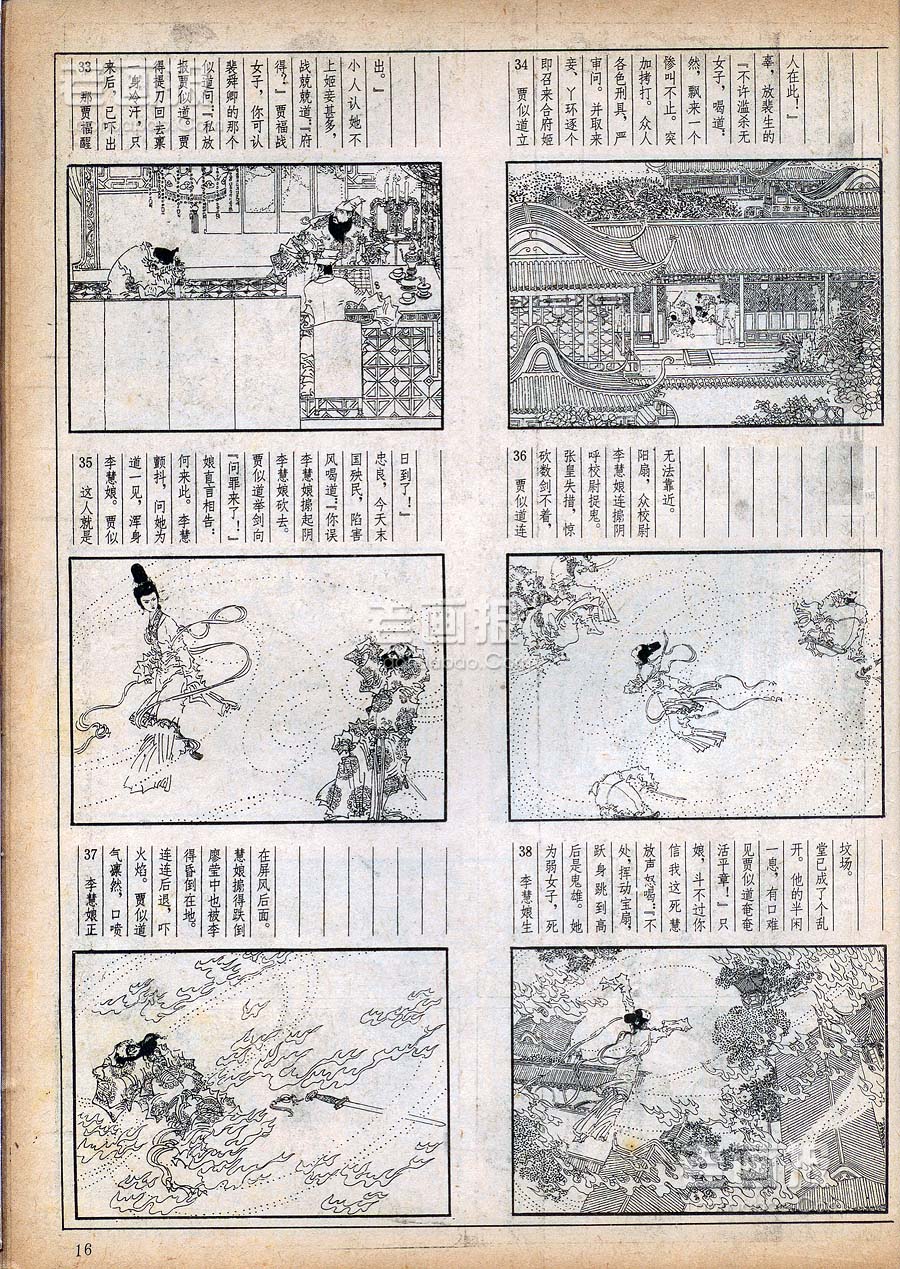 33 那贾福醒
来后，已吓出
一身冷汗，只
得提刀回去禀
报贾似道。贾
似道问：“私放
裴舜卿的那个
女子，你可认
得？”贾福战
战兢兢道：“府
上姬妾甚多，
小人认她不
出。”
34 贾似道立
即召来合府姬
妾、丫环逐个
审问。并取来
各色刑具，严
加拷打。众人
惨叫不止。突
然，飘来一个
女子，喝道：
“不许滥杀无
辜，放裴生的
人在此！”
35 这人就是
李慧娘。贾似
道一见，浑身
颤抖，问她为
何来此。李慧
娘直言相告：
“问罪来了！”
贾似道举剑向
李慧娘砍去。
李慧娘搧起阴
风喝道：“你误
国殃民，陷害
忠良，今天末
日到了！”
36 贾似道连
砍数剑不着，
张皇失措，惊
呼校尉捉鬼。
李慧娘连搧阴
阳扇，众校尉
无法靠近。
37 李慧娘正
气凛然，口喷
火焰。贾似道
连连后退，吓
得昏倒在地。
廖莹中也被李
慧娘搧得跌倒
在屏风后面。
38 李慧娘生
为弱女子，死
后是鬼雄。她
跃身跳到高
处，挥动宝扇，
放声怒喝：“不
信我这死慧
娘，斗不过你
活平章！”只
见贾似道奄奄
一息，有口难
开。他的半闲
堂已成了个乱
坟场。
16
老画报